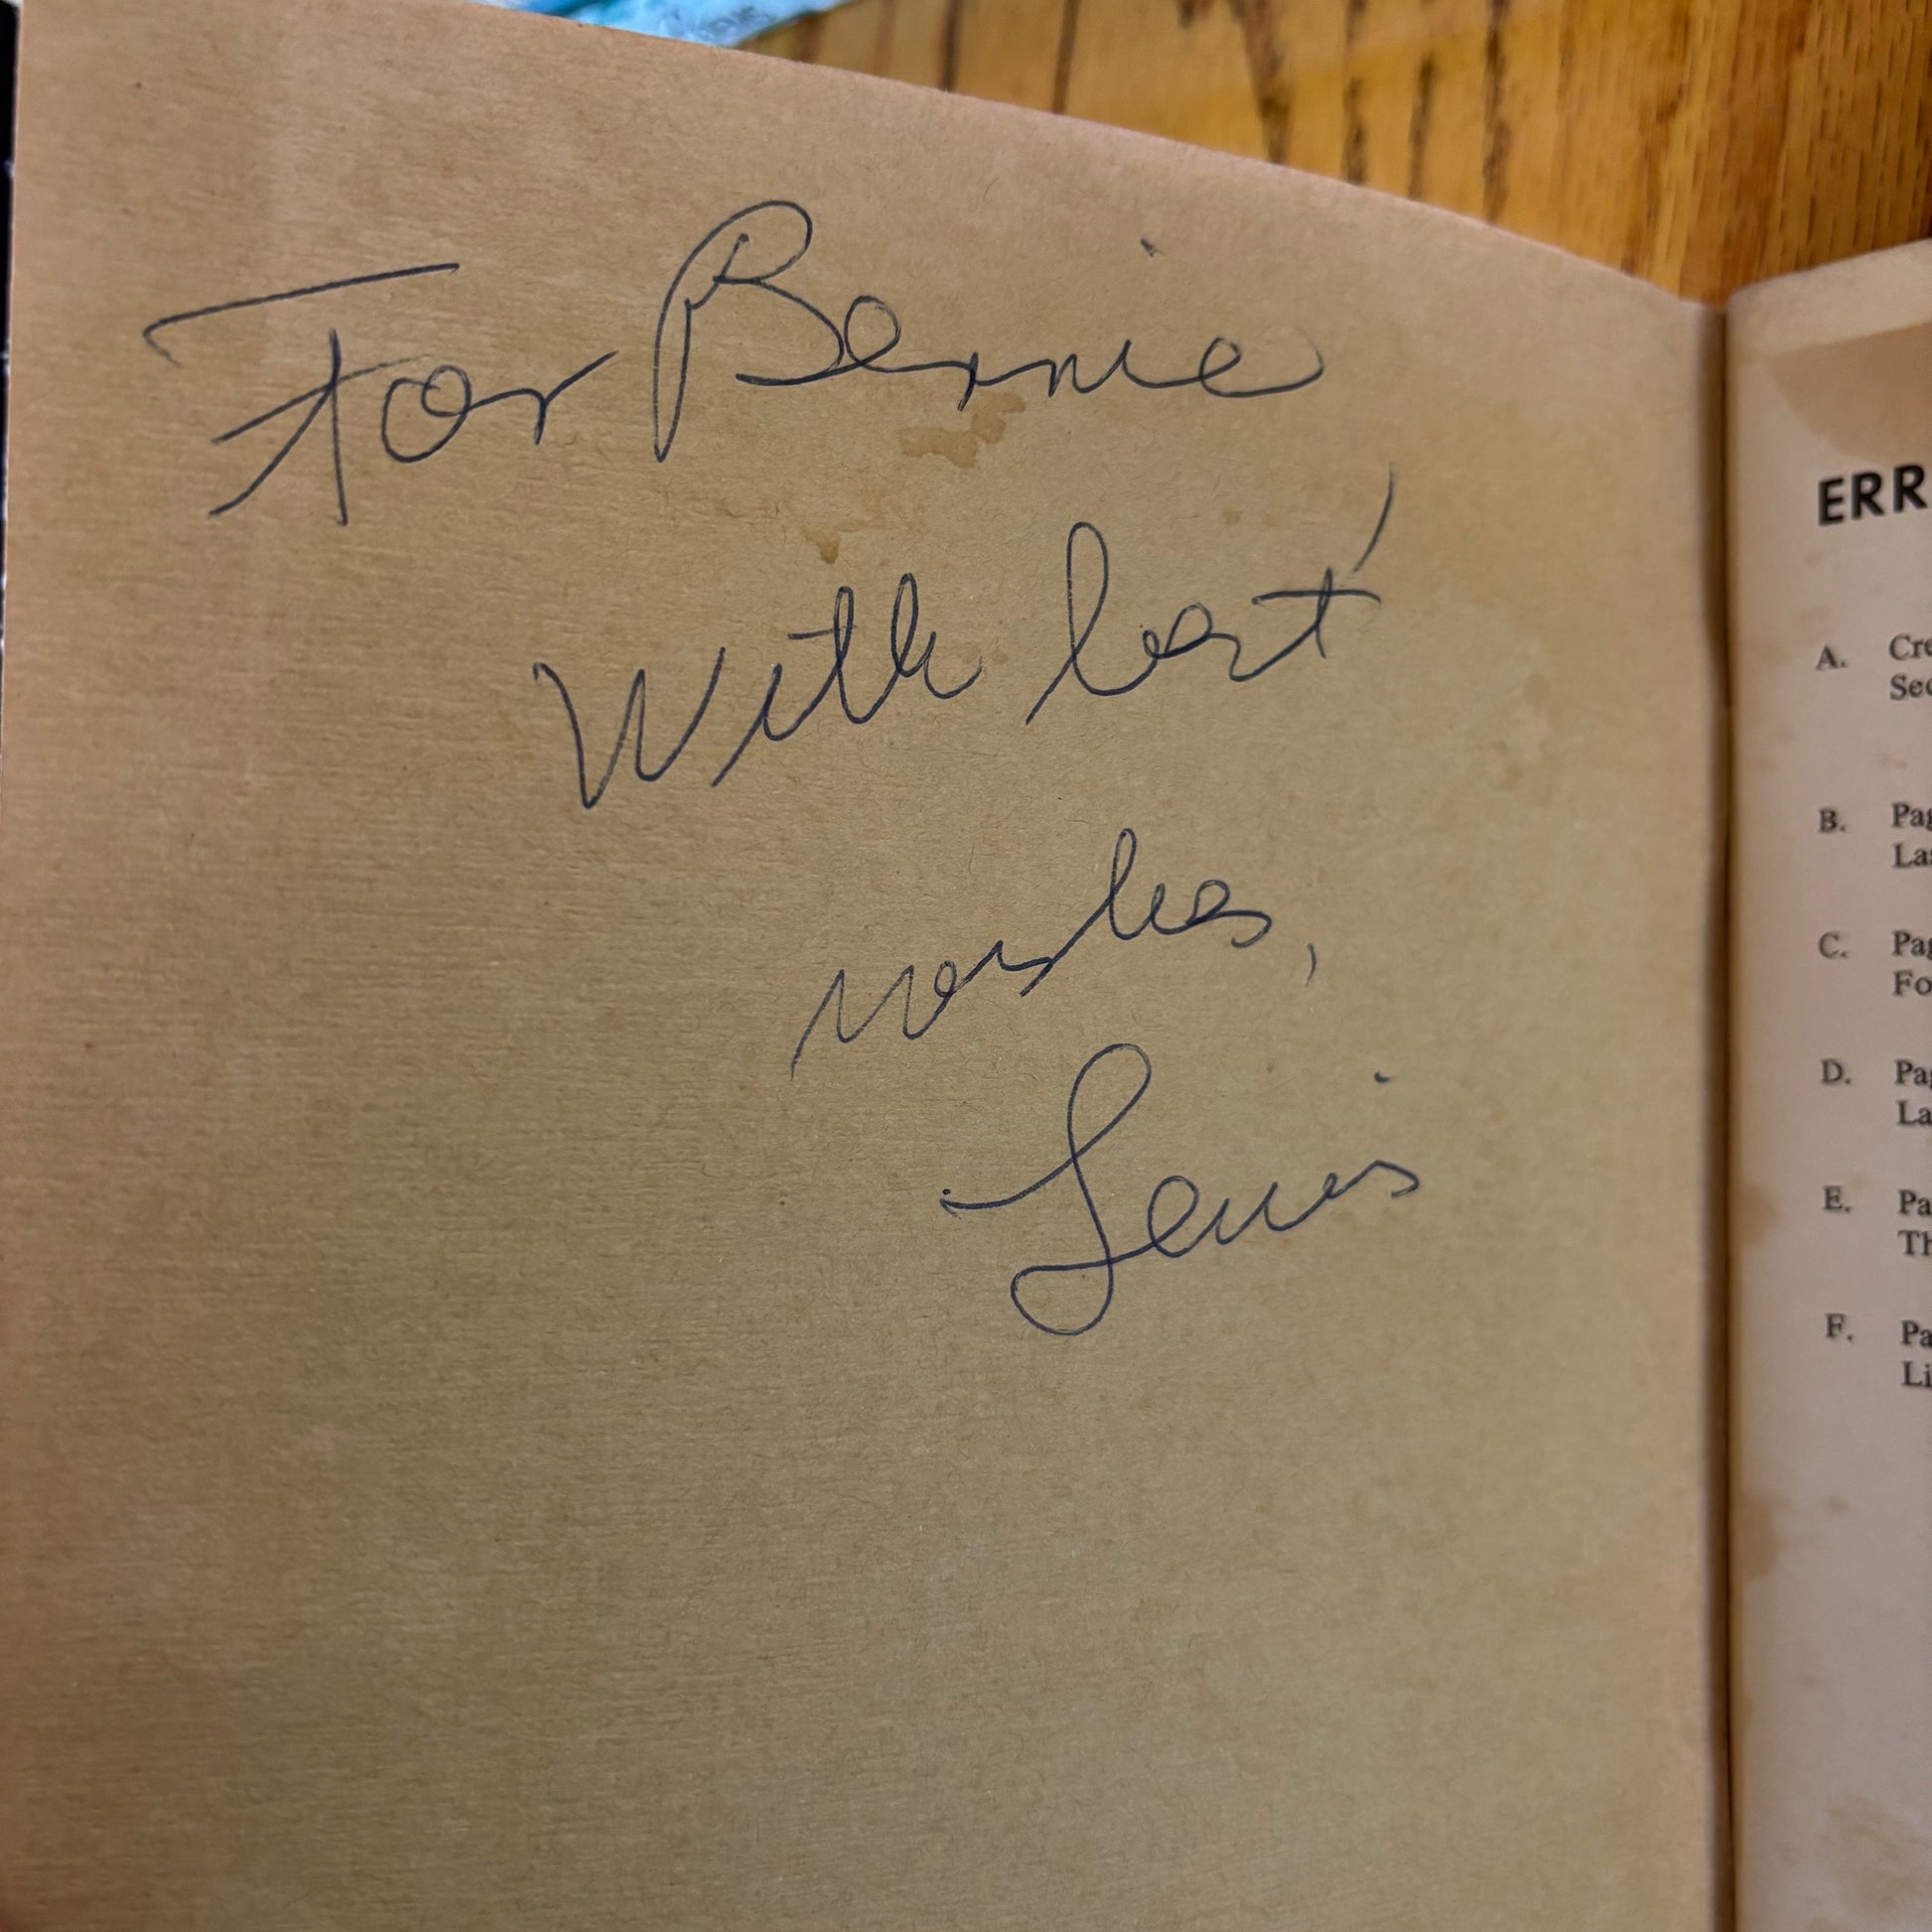 For Bernie
With best
wishes,
Lewis
ERR
A. Cre
Sec
B. Pag
Las
C. Pag
Fo
D. Pag
La
E. Pa
Th
F. Pa
Li